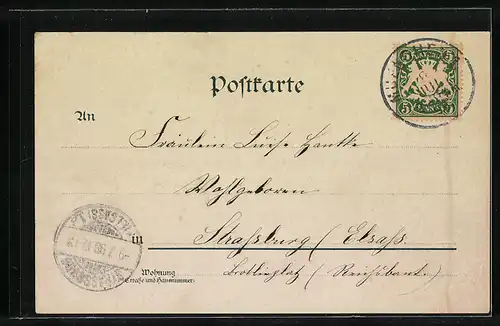 Postkarte
5 5
5 5
An
Fräulein Luise Hantke
Wohlgeboren
in
Straßburg / Elsass.
Wohnung
(Straße und Hausnummer)
Broglieplatz (Reichsbank)